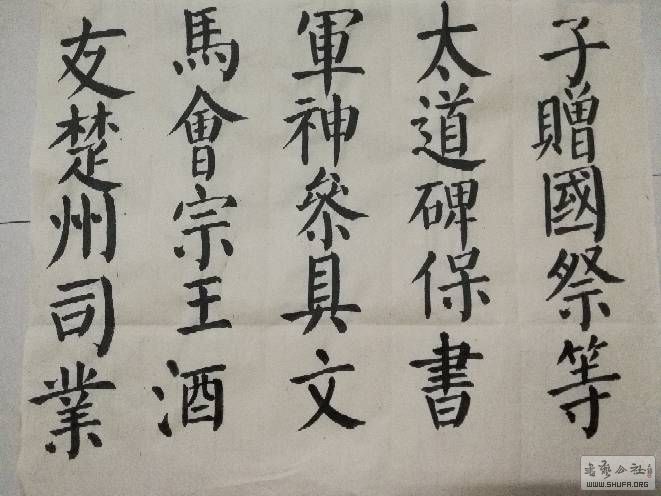 子贈國祭等
太道碑保書
軍神參具文
馬會宗王酒
友楚州司業
书艺公社
WWW.SHUFA.ORG